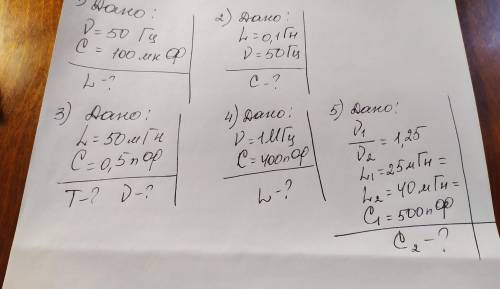 1) Дано:
D = 50 Гц
C = 100 мк Ф
L - ?
2) Дано:
L = 0,1 Гн
D = 50 Гц
C - ?
3) Дано:
L = 50 мГн
C = 0,5 п Ф
T - ? D - ?
4) Дано:
D = 1 МГц
C = 400 п Ф
L - ?
5) Дано:
D1
D2 = 1,25
L1 = 25 мГн =
L2 = 40 мГн =
C1 = 500 п Ф
C2 - ?